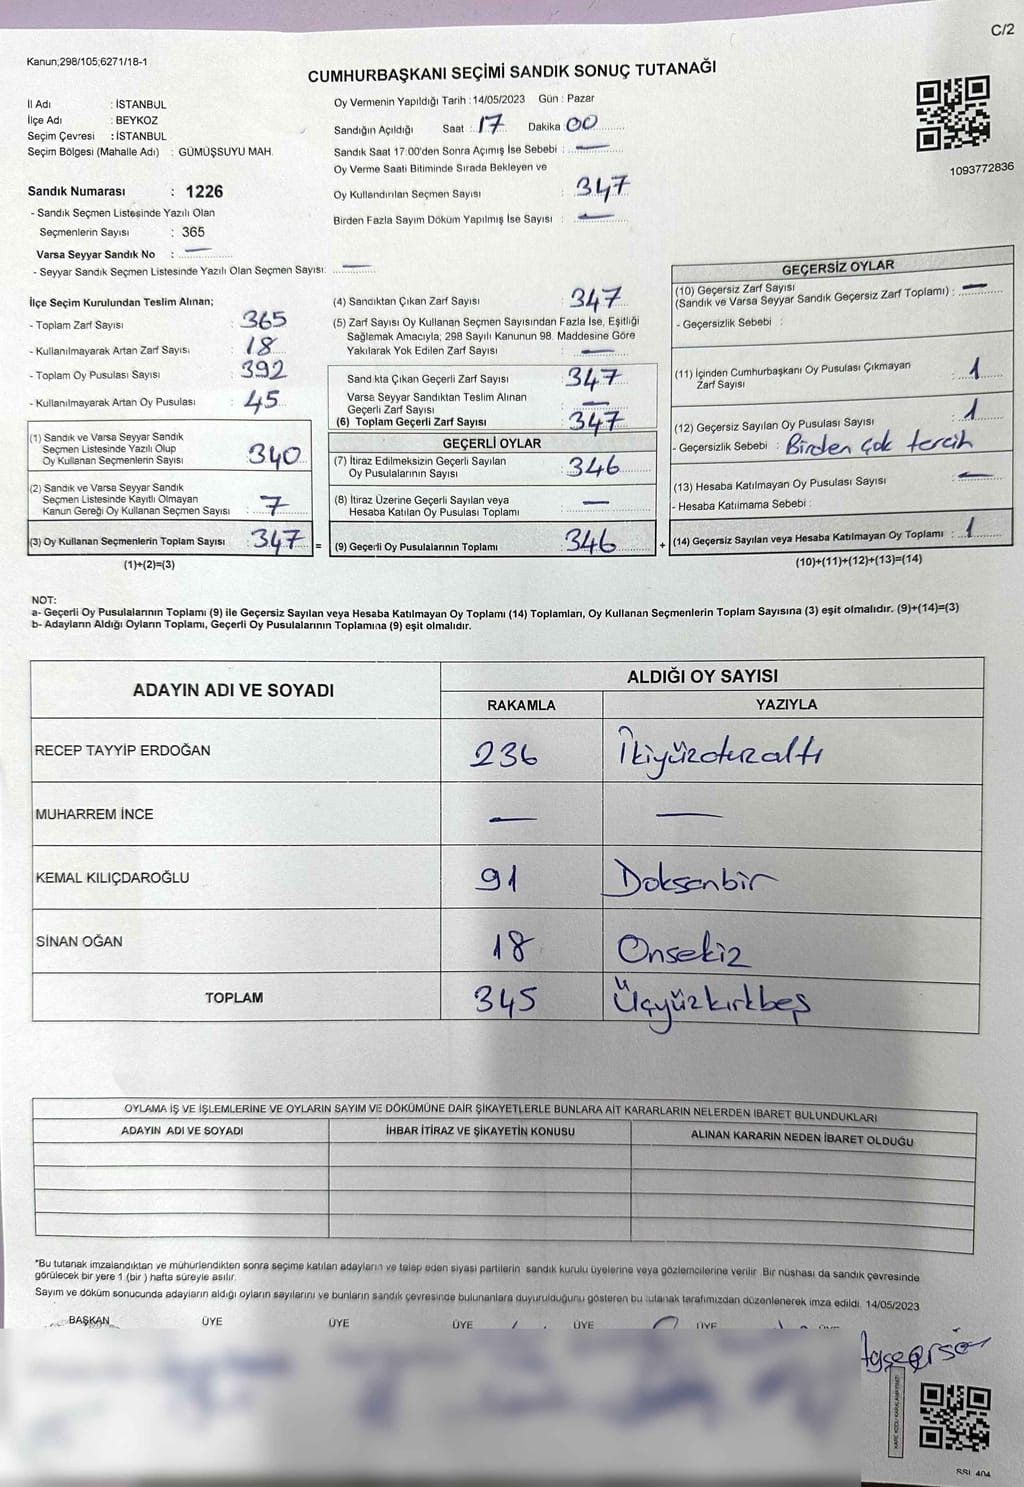 C/2
Kanun;298/105;6271/18-1
CUMHURBAŞKANI SEÇİMİ SANDIK SONUÇ TUTANAĞI
İl Adı : İSTANBUL
İlçe Adı : BEYKOZ
Seçim Çevresi : İSTANBUL
Seçim Bölgesi (Mahalle Adı) : GÜMÜŞSUYU MAH.
Sandık Numarası : 1226
- Sandık Seçmen Listesinde Yazılı Olan
Seçmenlerin Sayısı : 365
Varsa Seyyar Sandık No : —
- Seyyar Sandık Seçmen Listesinde Yazılı Olan Seçmen Sayısı: —
Oy Vermenin Yapıldığı Tarih : 14/05/2023 Gün : Pazar
Sandığın Açıldığı Saat : 17 Dakika : 00
Sandık Saat 17:00'den Sonra Açımış İse Sebebi : —
Oy Verme Saati Bitiminde Sırada Bekleyen ve
Oy Kullandırılan Seçmen Sayısı : 347
Birden Fazla Sayım Döküm Yapılmış İse Sayısı : —
1093772836
İlçe Seçim Kurulundan Teslim Alınan;
- Toplam Zarf Sayısı : 365
- Kullanılmayarak Artan Zarf Sayısı : 18
- Toplam Oy Pusulası Sayısı : 392
- Kullanılmayarak Artan Oy Pusulası : 45
(1) Sandık ve Varsa Seyyar Sandık
Seçmen Listesinde Yazılı Olup
Oy Kullanan Seçmenlerin Sayısı : 340
(2) Sandık ve Varsa Seyyar Sandık
Seçmen Listesinde Kayıtlı Olmayan
Kanun Gereği Oy Kullanan Seçmen Sayısı : 7
(3) Oy Kullanan Seçmenlerin Toplam Sayısı : 347 =
(1)+(2)=(3)
(4) Sandıktan Çıkan Zarf Sayısı : 347
(5) Zarf Sayısı Oy Kullanan Seçmen Sayısından Fazla İse, Eşitliği
Sağlamak Amacıyla; 298 Sayılı Kanunun 98. Maddesine Göre
Yakılarak Yok Edilen Zarf Sayısı : —
Sandıkta Çıkan Geçerli Zarf Sayısı : 347
Varsa Seyyar Sandıktan Teslim Alınan
Geçerli Zarf Sayısı : —
(6) Toplam Geçerli Zarf Sayısı : 347
GEÇERLİ OYLAR
(7) İtiraz Edilmeksizin Geçerli Sayılan
Oy Pusulalarının Sayısı : 346
(8) İtiraz Üzerine Geçerli Sayılan veya
Hesaba Katılan Oy Pusulası Toplamı : —
(9) Geçerli Oy Pusulalarının Toplamı : 346 +
GEÇERSİZ OYLAR
(10) Geçersiz Zarf Sayısı
(Sandık ve Varsa Seyyar Sandık Geçersiz Zarf Toplamı) : —
- Geçersizlik Sebebi :
(11) İçinden Cumhurbaşkanı Oy Pusulası Çıkmayan
Zarf Sayısı : 1
(12) Geçersiz Sayılan Oy Pusulası Sayısı : 1
- Geçersizlik Sebebi : Birden çok tercih
(13) Hesaba Katılmayan Oy Pusulası Sayısı : —
- Hesaba Katılmama Sebebi :
(14) Geçersiz Sayılan veya Hesaba Katılmayan Oy Toplamı : 1
(10)+(11)+(12)+(13)=(14)
NOT:
a- Geçerli Oy Pusulalarının Toplamı (9) ile Geçersiz Sayılan veya Hesaba Katılmayan Oy Toplamı (14) Toplamları, Oy Kullanan Seçmenlerin Toplam Sayısına (3) eşit olmalıdır. (9)+(14)=(3)
b- Adayların Aldığı Oyların Toplamı, Geçerli Oy Pusulalarının Toplamına (9) eşit olmalıdır.
ADAYIN ADI VE SOYADI ALDIĞI OY SAYISI
RAKAMLA YAZIYLA
RECEP TAYYİP ERDOĞAN 236 İkiyüzotuzaltı
MUHARREM İNCE — —
KEMAL KILIÇDAROĞLU 91 Doksanbir
SİNAN OĞAN 18 Onsekiz
TOPLAM 345 Üçyüzkırkbeş
OYLAMA İŞ VE İŞLEMLERİNE VE OYLARIN SAYIM VE DÖKÜMÜNE DAİR ŞİKAYETLERLE BUNLARA AİT KARARLARIN NELERDEN İBARET BULUNDUKLARI
ADAYIN ADI VE SOYADI İHBAR İTİRAZ VE ŞİKAYETİN KONUSU ALINAN KARARIN NEDEN İBARET OLDUĞU
*Bu tutanak imzalandıktan ve mühürlendikten sonra seçime katılan adayların ve talep eden siyasi partilerin sandık kurulu üyelerine veya gözlemcilerine verilir. Bir nüshası da sandık çevresinde
görülecek bir yere 1 (bir ) hafta süreyle asılır.
Sayım ve döküm sonucunda adayların aldığı oyların sayılarını ve bunların sandık çevresinde bulunanlara duyurulduğunu gösteren bu tutanak tarafımızdan düzenlenerek imza edildi. 14/05/2023
BAŞKAN ÜYE ÜYE ÜYE ÜYE ÜYE